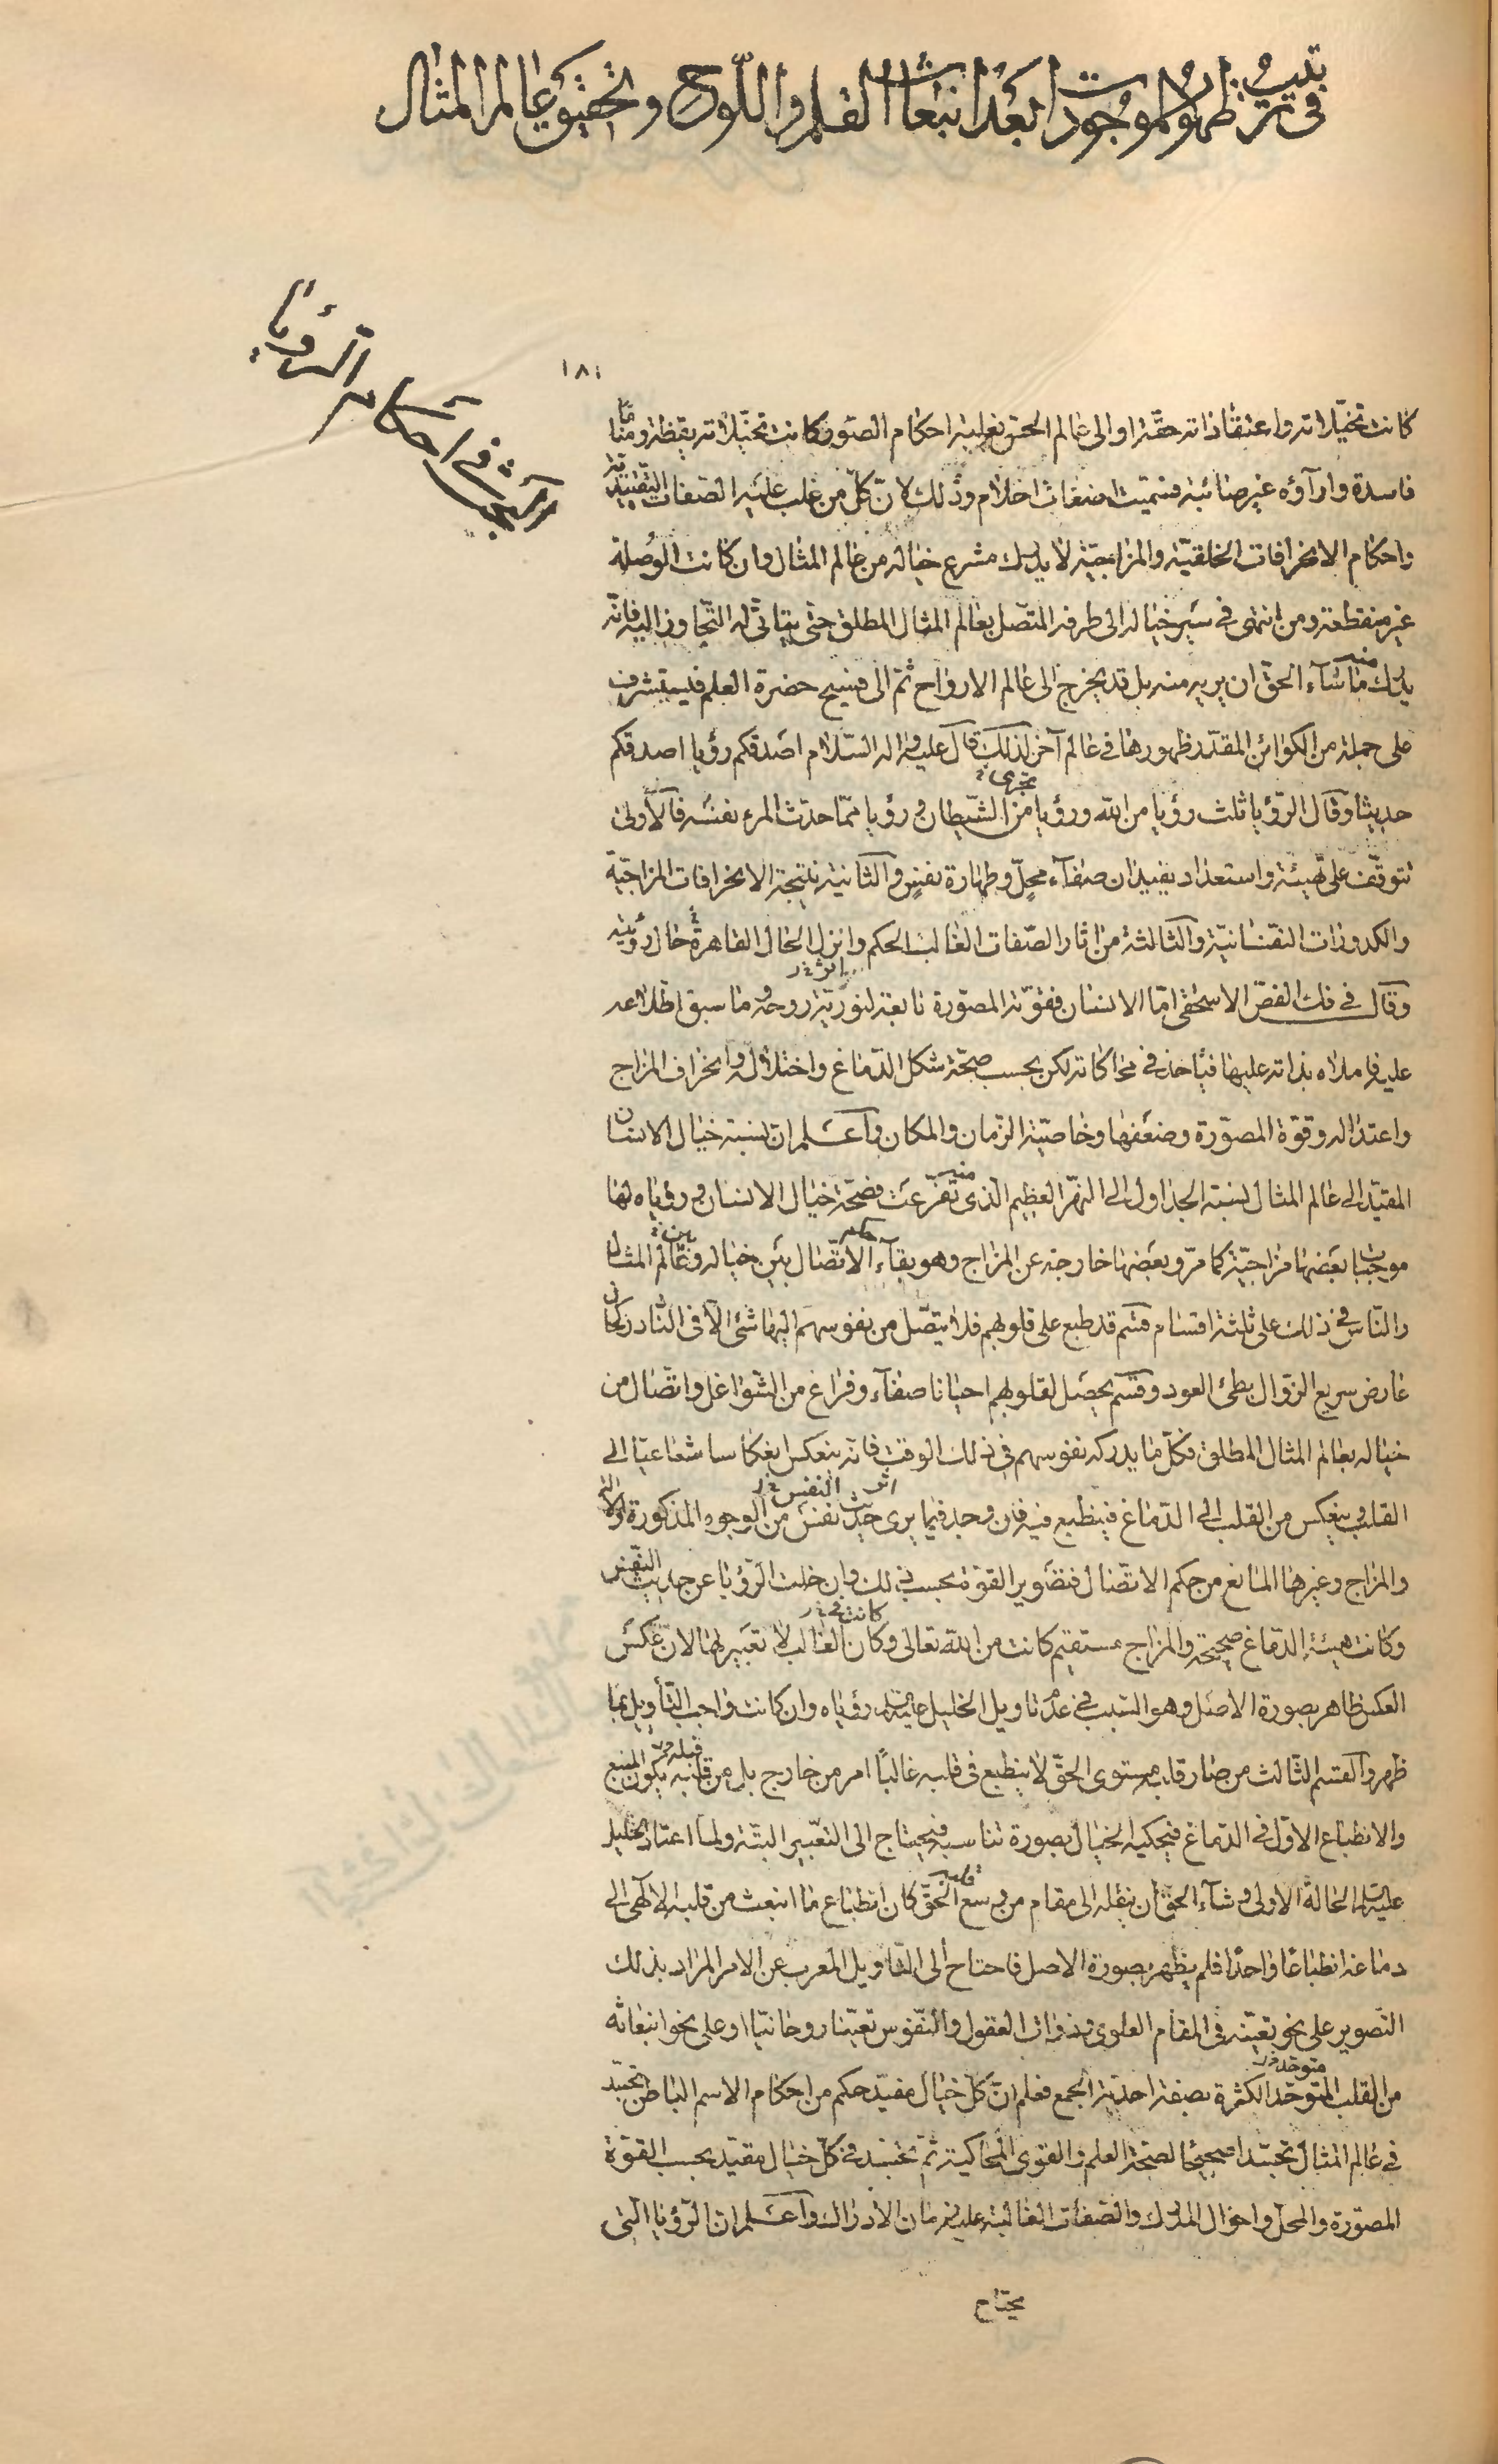 في ترتيب ظهور الموجودات بعد انبعاث القلم واللوح وتحقيق عالم المثال
البحث في احكام الرؤيا
١٨١
كانت تخيّلاته واعتقاداته حقّة او الى عالم الحس بغلبة احكام الصور كانت تخيّلاته يقظة ومنامًا
فاسدة وارآؤه غير صائبة فسميت اضغاث احلام وذلك لانّ كلّ من غلب عليه الصفات التقييدية
واحكام الانحرافات الخلقيّة والمزاجيّة لا يدرك مشرع خياله من عالم المثال وان كانت الوصلة
غير منقطعة ومن انتهى في سير خياله الى طرفه المتّصل بعالم المثال المطلق حتى يتأتّى له التجاوز اليه فانّه
يدرك منه ما شآء الحقّ ان يريه منه بل قد يخرج الى عالم الارواح ثمّ الى فسيح حضرة العلم فيستشرف
على جملة من الكوائن المقدّر ظهورها في عالم آخر لذلك قال عليه وآله السّلام اصدقكم رؤيا اصدقكم
حديثا وقال الرّؤيا ثلث رؤيا من الله ورؤيا تحزين من الشّيطان ورؤيا ممّا حدّث المرء نفسه فالأولى
تتوقّف على تهيئة واستعداد يفيدان صفآء محلّ وطهارة نفس والثانية نتيجة الانحرافات المزاجيّة
والكدورات النفسانيّة والثالثة من اثار الصّفات الغالب الحكم وانزل الحال القاهرة حال رؤيته
وقال في فك الفصّ الاسحقى امّا الانسان فقوّته المصوّرة تابعة لنوريّة روحه وما سبق اطّلاعه
عليه فاملاه بذاته عليها فيأخذ في محاكاته لكن بحسب صحّة شكل الدّماغ واختلاله وانحراف المزاج
واعتداله وقوّة المصوّرة وضعفها وخاصيّة الزّمان والمكان واعلم ان نسبة خيال الانسان
المقيّد الى عالم المثال لنسبة الجداول الى النهر العظيم الذى منه تفرّعت فصحّة خيال الانسان ورؤياه لها
موجبات بعضها مزاجيّة كما مرّ وبعضها خارجة عن المزاج وهو بقآء حكم الاتّصال بين خياله وبين عالم المثال
والنّاس في ذلك على ثلثة اقسام قسم قد طبع على قلوبهم فلا يتّصل من نفوسهم اليها شئ الّا في النّادر لحال
عارض سريع الزوال بطئ العود وقسم يحصل لقلوبهم احيانا صفآء وفراغ من الشواغل واتّصال من
خياله بعالم المثال المطلق فكلّ ما يدركه نفوسهم في ذلك الوقت فانّه ينعكس انعكاسا شعاعيّا الى
القلب وينعكس من القلب الى الدّماغ فينطبع فيه فان وجد فيما يرى اثر حديث النفس من الوجوه المذكورة والآلة
والمزاج وغيرها المانع من حكم الاتّصال فتصوير القوّة بحسب ذلك وان خلت الرّؤيا عن حديث النّفس
وكانت هيئة الدّماغ صحيحة والمزاج مستقيم كانت من الله تعالى وكان الغالب لا تعبير لها لانّ عكس
العكس ظاهر بصورة الاصل وهو السّبب في عدم تاويل الخليل عليه السلام رؤياه وان كانت واجب التّأويل بما
ظهر والقسم الثّالث من صار قلبه مستوى الحقّ لا ينطبع في قلبه غالبًا امر من خارج بل من قلبه يكون المنبع
والانطباع الاوّل في الدّماغ فيحكيه الخيال بصورة تناسبه فيحتاج الى التّعبير البتّة ولمّا اعتاد الخليل
عليه السلام الحالة الاولى وشآء الحقّ ان ينقله الى مقام من وسع قلبه الحقّ كان انطباع ما انبعث من قلبه الالهى الى
دماغه انطباعًا واحدًا فلم يظهر بصورة الاصل فاحتاج الى التّاويل المعرب عن الامر المراد بذلك
التصوير على نحو تعيّنه في المقام العلوى وذوات العقول والنّفوس تعيّنا روحانيّا او على نحو انبعاثه
من القلب المتوحّد الكثرة بصفة احديّة الجمع فعلم انّ كلّ خيال مقيّد حكم من احكام الاسم الباطن تجسّد
في عالم المثال تجسّدا صحيحًا لصحّة العلم والقوى المحاكية ثمّ تجسّد في كلّ خيال مقيّد بحسب القوّة
المصوّرة والمحلّ واحوال المدرك والصّفات الغالبة عليه زمان الادراك واعلم ان الرّؤيا التي
محتاج